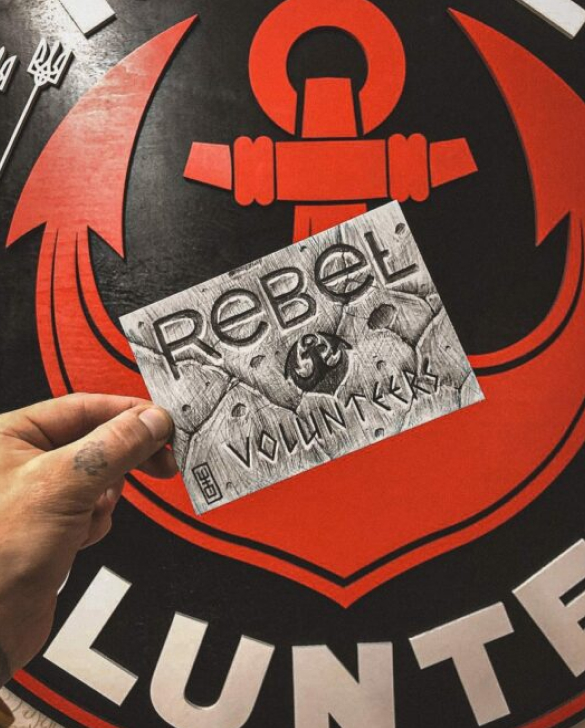 REBEL
VOLUNTEERS
LUNTE